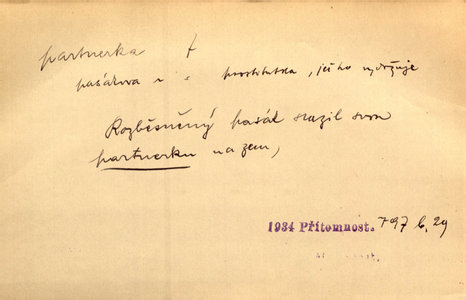 partnerka f
pasákova prostitutka, jež ho vydržuje
Rozběsněný pasák srazil svou
partnerku na zem,
1934 Přítomnost. 797 6.29